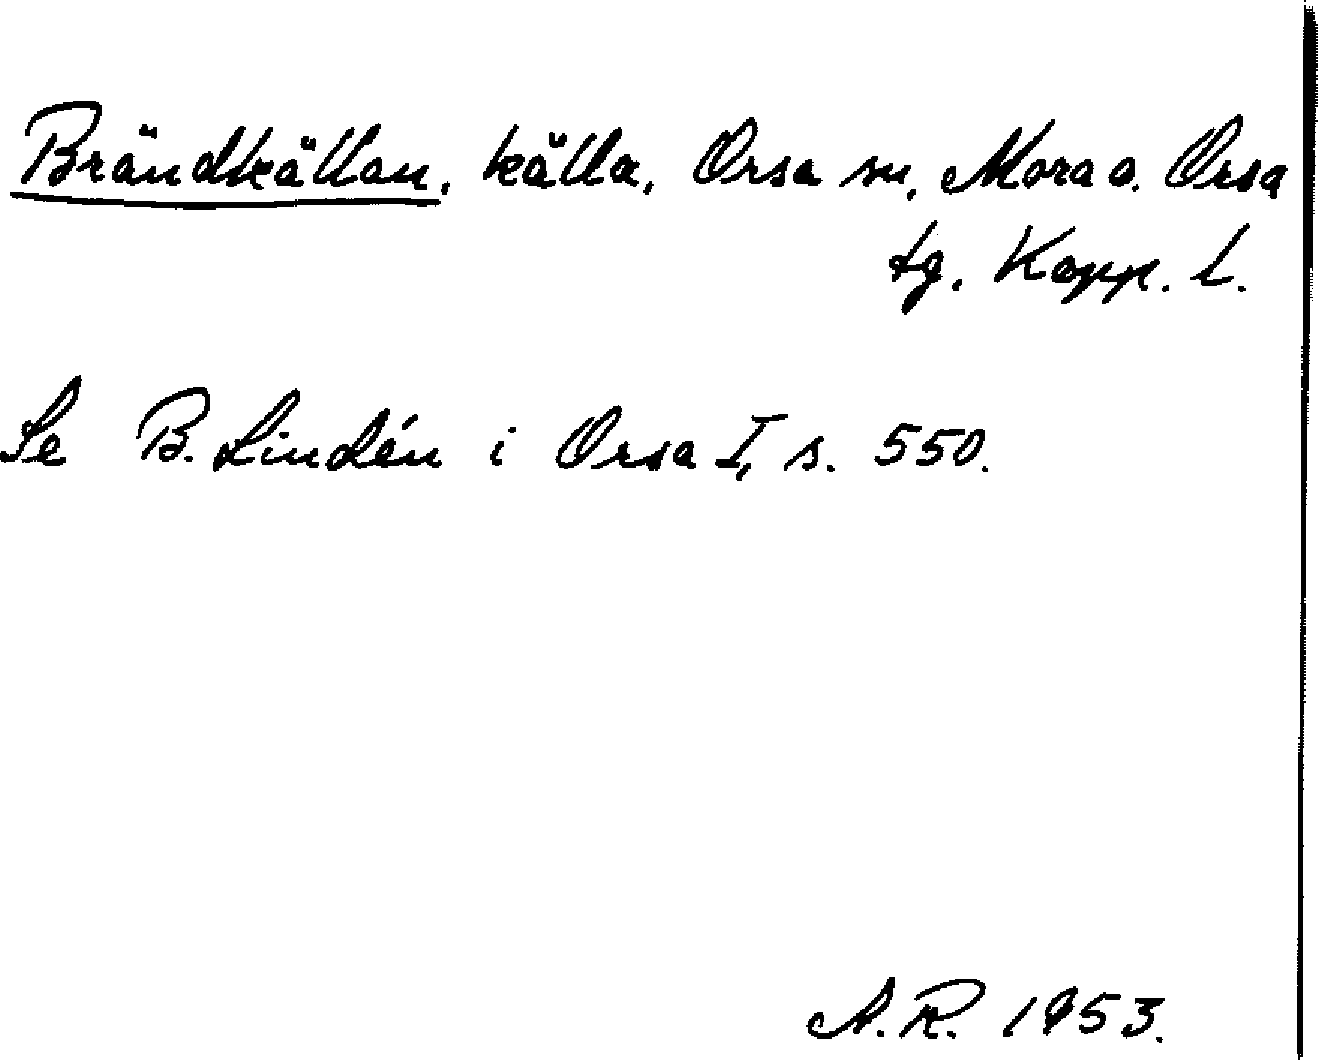 Brändkällan, källa, Orsa sn, Mora o. Orsa
tg. Kopp. l.
Se B. Lindén i Orsa I, s. 550.
A.R. 1953.